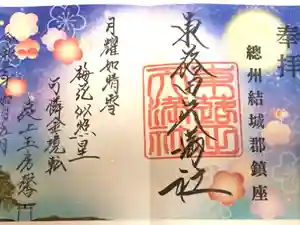 奉拝
總州結城郡鎮座
東蕗田天満社
月耀如晴雪
梅花似照星
可憐金鏡転
庭上玉房馨